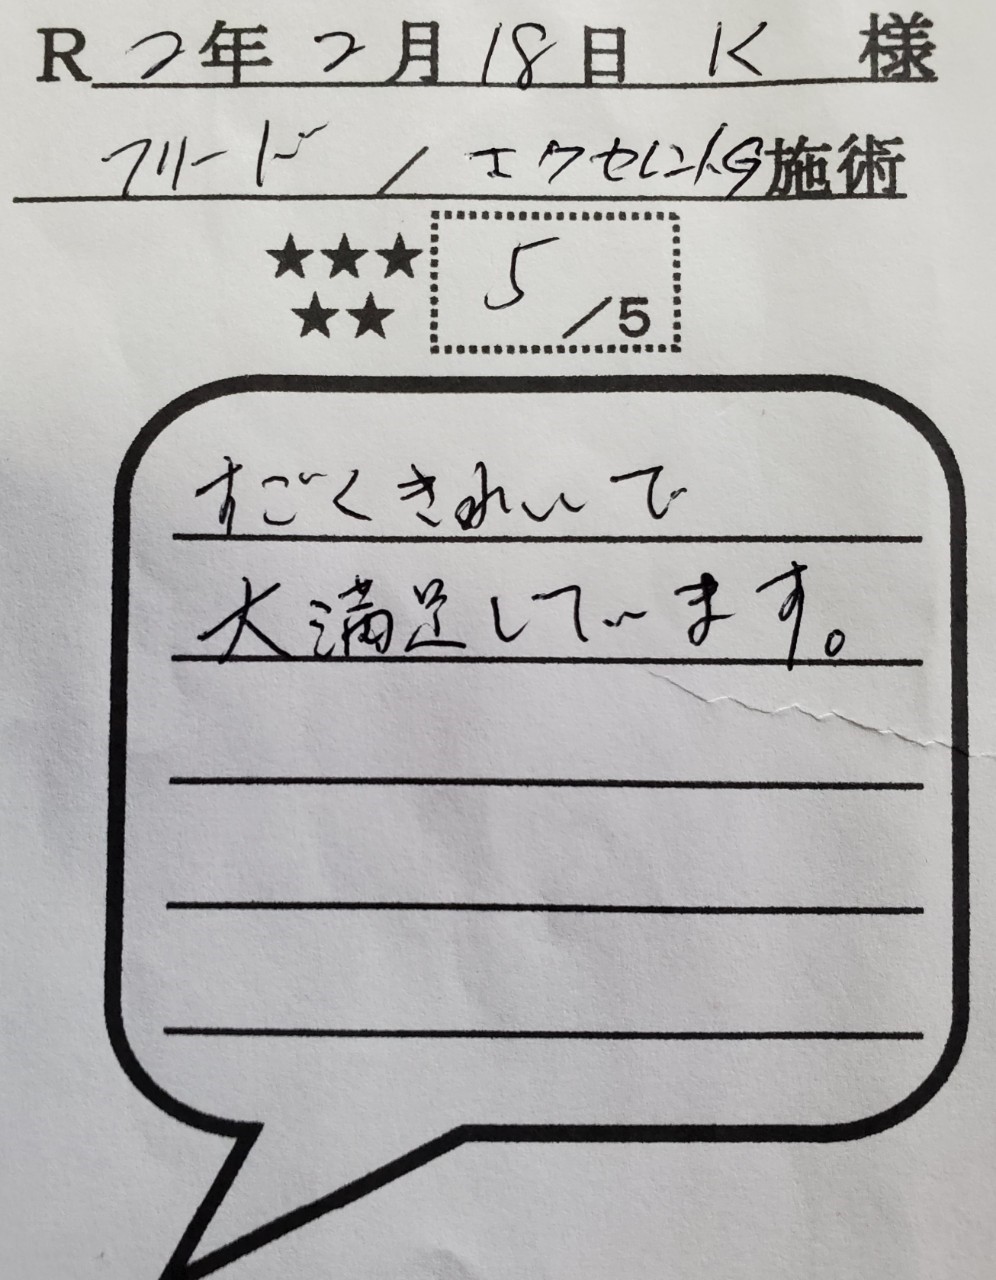 R 2年2月18日 K 様
フリード / エクセレントG 施術
★★★
★★
5/5
すごくきれいで
大満足しています。